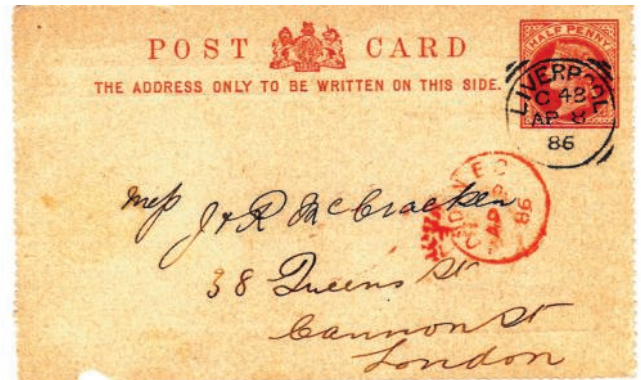 POST CARD
THE ADDRESS ONLY TO BE WRITTEN ON THIS SIDE.
HALF PENNY
LIVERPOOL
C 48
AP 8
86
Mess J & R McCracken
LONDON E C
AP
86
38 Queens St
Cannon St
London